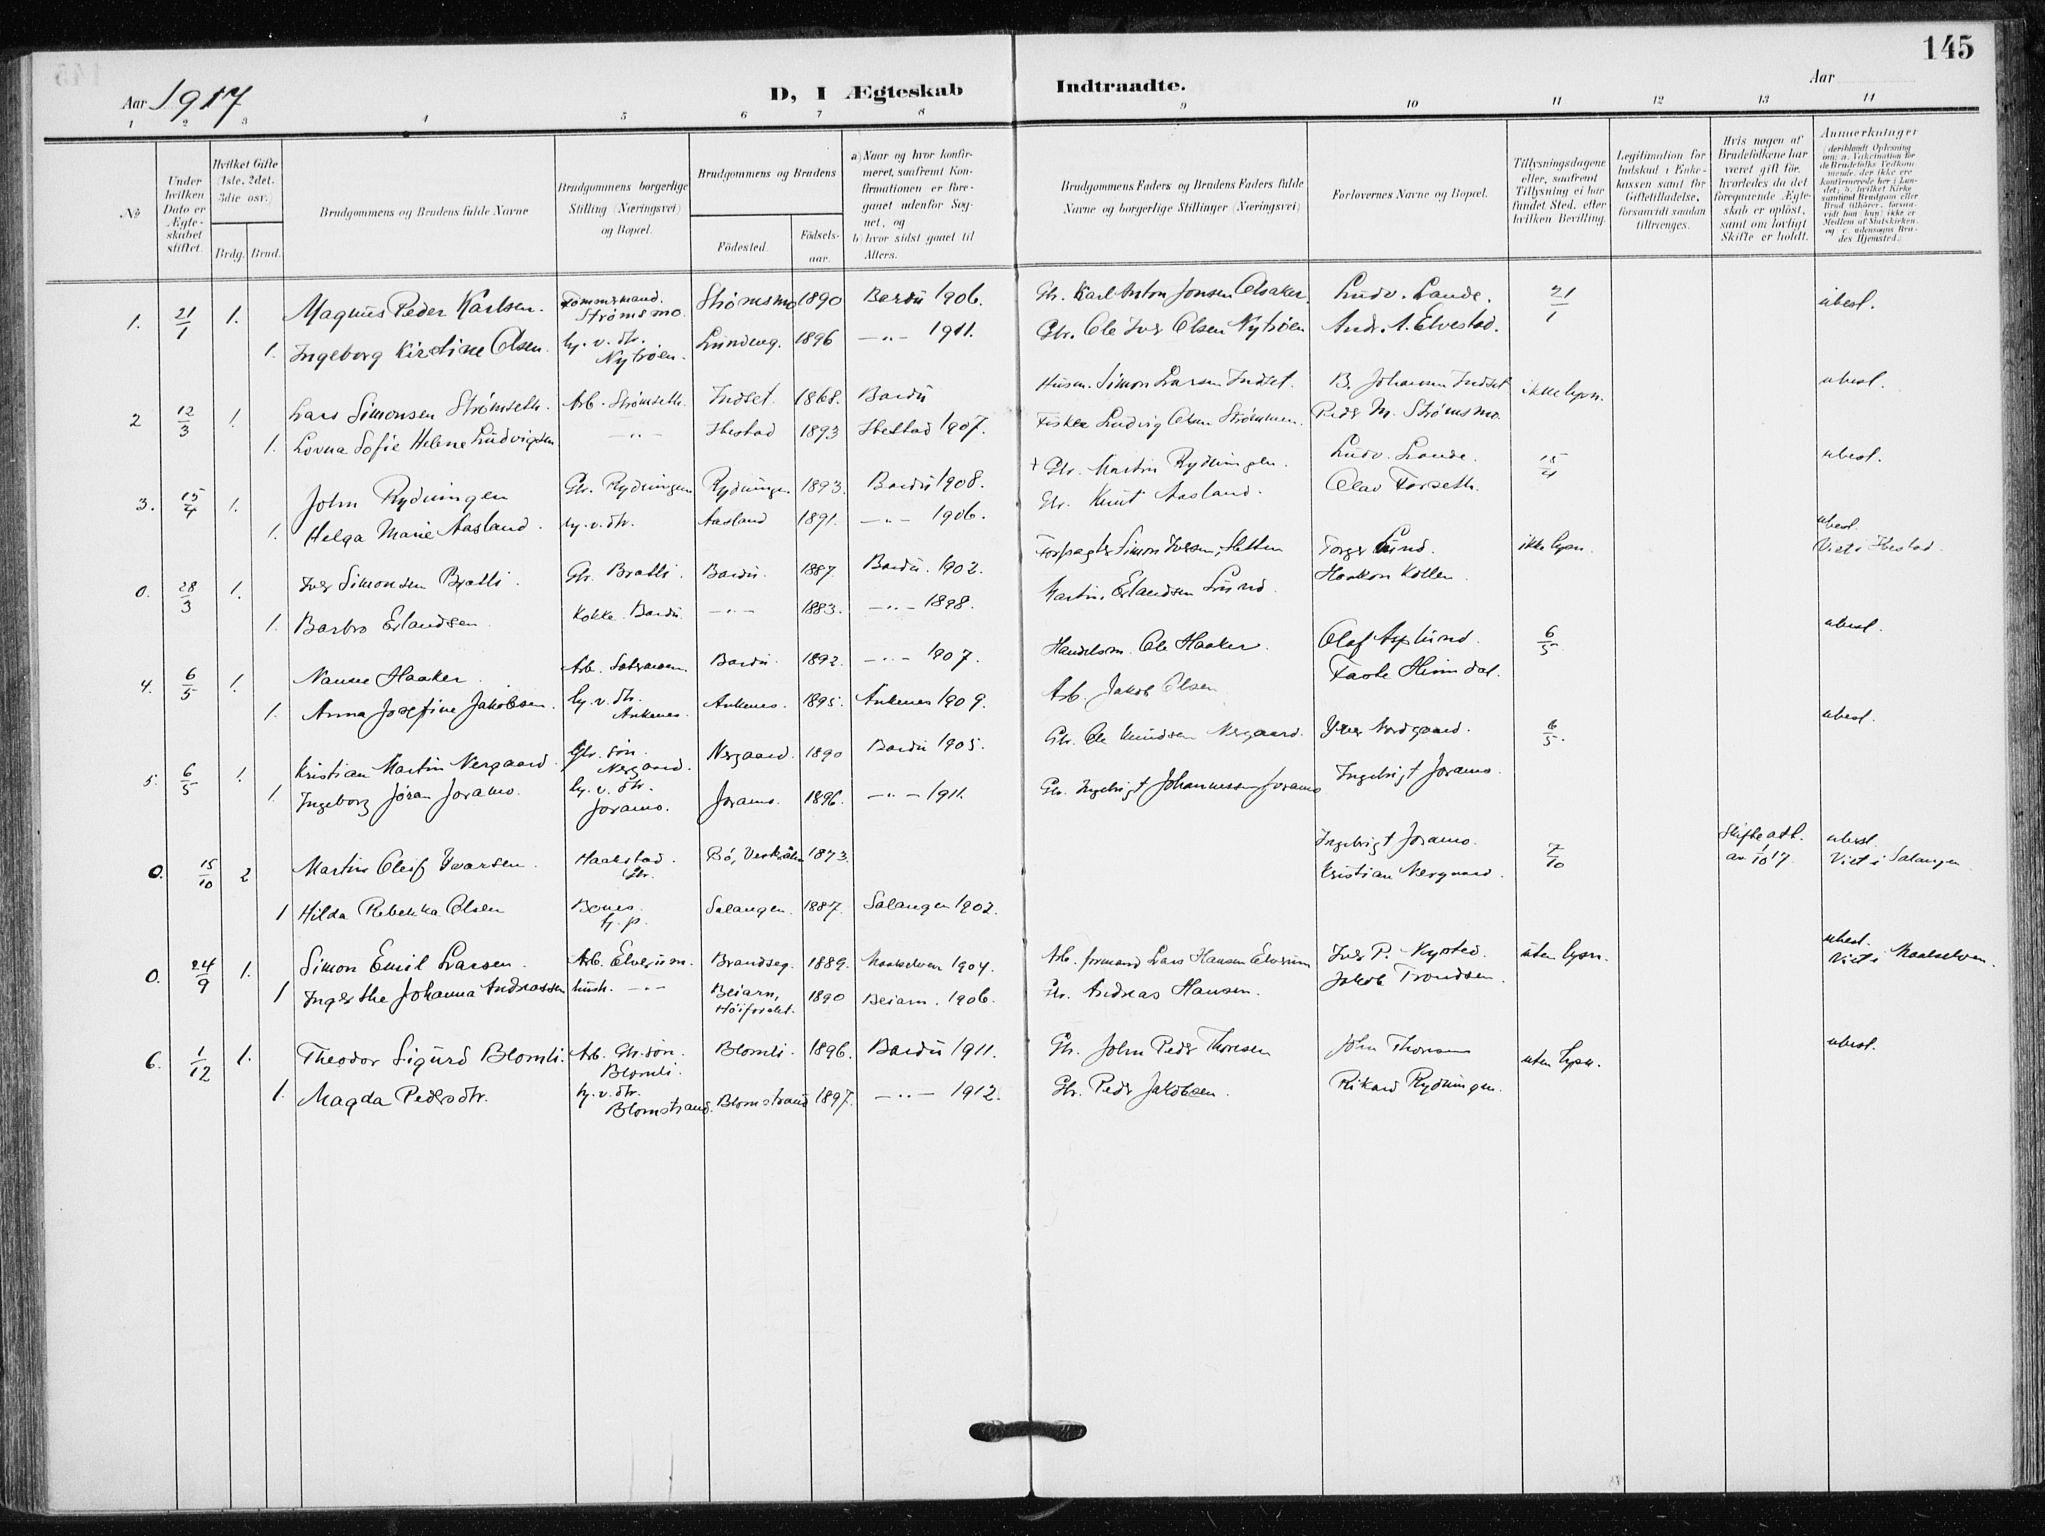 145
Aar 1917 D, I Ægteskab Indtraadte. Aar
1 2 3 4 5 6 7 8 9 10 11 12 13 14
№
Under hvilken Dato er Ægteskabet stiftet.
Hvilket Gifte (1ste, 2det, 3die osv.)
Brdg. Brud.
Brudgommens og Brudens fulde Navne
Brudgommens borgerlige Stilling (Næringsvei) og Bopæl.
Brudgommens og Brudens
Födested. Födselsaar.
a) Naar og hvor konfirmeret, saafremt Konfirmationen er foregaaet udenfor Sognet, og
b) hvor sidst gaaet til Alters.
Brudgommens Faders og Brudens Faders fulde Navne og borgerlige Stillinger (Næringsvei)
Forlovernes Navne og Bopæl.
Tillysningsdagene eller, saafremt Tillysning ei har fundet Sted, efter hvilken Bevilling.
Legitimation for Indskud i Enkekassen samt for Giftetilladelse, forsaavidt saadan tiltrænges.
Hvis nogen af Brudefolkene har været gift för, hvorledes da det foregaaende Ægteskab er oplöst, samt om lovligt Skifte er holdt.
Anmerkninger
1. 21/1 1. Magnus Peder Karlsen. Tømmermand. Strømsmo. Strømsmo 1890 Bardu 1906. Gbr. Karl Anton Jonsen Alsaker. Ludv. Lande. 21/1 ubesl.
1. Ingeborg Kirstine Olsen. hj. v. dtr. Nytrøen. Lundeng. 1896 -"- 1911. Gbr. Ole Iver Olsen Nytrøen Andr. A. Elvestad.
2 12/3 1. Lars Simonsen Strømseth. Arb. Strømseth. Indset. 1868. Bardu Husm. Simon Larsen Indset. B. Johansen Indset ikke lysn. ubesl.
1. Lovna Sofie Helene Ludvigsen -"- Ibestad 1893 Ibestad 1907. Fisker Ludvig Olsen Strømmen. Peder M. Strømsmo.
3. 15/4 1. John Rydningen Gbr. Rydningen Rydningen 1893. Bardu 1908. + Gbr. Martin Rydningen. Ludv. Lande. 15/4 ubesl.
1. Helga Marie Aasland. hj. v. dtr. Aasland 1891. -"- 1906. Gbr. Knut Aasland. Olav Forseth.
0. 28/3 1. Iver Simonsen Bratli. Gbr. Bratli. Bardu. 1887. Bardu. 1902. Forpagter Simon Iversen, Torger Lund. ikke lysn. ubesl. Viet i Ibestad.
1. Barbro Erlandsen. Kokke. Bardu. -"- 1883. -"- 1898. Martin Erlandsen Lund. Haakon Kollen.
4. 6/5 1. Nanne Haaker. Arb. Bardu. 1892. -"- 1907. Handelsm. Ole Haaker. Olaf Asplund. 6/5 ubesl.
1. Anna Josefine Jakobsen. hj. v. dtr. Ankenes. Ankenes. 1895. Ankenes 1909. Arb. Jakob Olsen Heimdal.
5. 6/5 1. Kristian Martin Nergaard. Gbr. søn. Nergaard. Nergaard. 1890 Bardu 1905. Gbr. Ole Knudsen Nergaard. Nordgaard. 6/5. ubesl.
1. Ingeborg Jøran Joramo. hj. v. dtr. Joramo. Joramo. 1896. -"- 1911. Gbr. Ingebrigt Johannessen Joramo Ingebrigt Joramo.
0. 15/10 2 Martin Oleif Ivarsen. Haakstad. Gbr. Bø, Vesteraalen 1873. Ingebrigt Joramo. 7/10 Skifteatt. av 1/10 17. ubesl. Viet i Salangen
Kristian Nergaard.
1 Hilda Rebekka Olsen Bones. hj. p. Salangen. 1887. Salangen 1902.
0. 24/9 1. Simon Emil Larsen. Arb. Elverum. Brandseg. 1889. Maalselven 1904. Arb. formand Lars Hansen Elverum Iver P. Nysted. uten lysn. ubesl. Viet i Maalselven.
1 Ingerthe Johanna Andreassen hush. -"- Beiarn, 1890 Beiarn. 1906. Gbr. Andreas Hansen. Jakob Trondsen.
6. 1/12 1. Theodor Sigurd Blomli. Arb. Gbr. søn. Blomli. Blomli. 1896. Bardu 1911. Gbr. John Peder Thoresen John Thoresen uten lysn. ubesl.
1. Magda Pedersdtr. hj. v. dtr. Blomstrand. Blomstrand 1897. -"- 1912. Gbr. Peder Jakobsen. Rikard Rydningen.